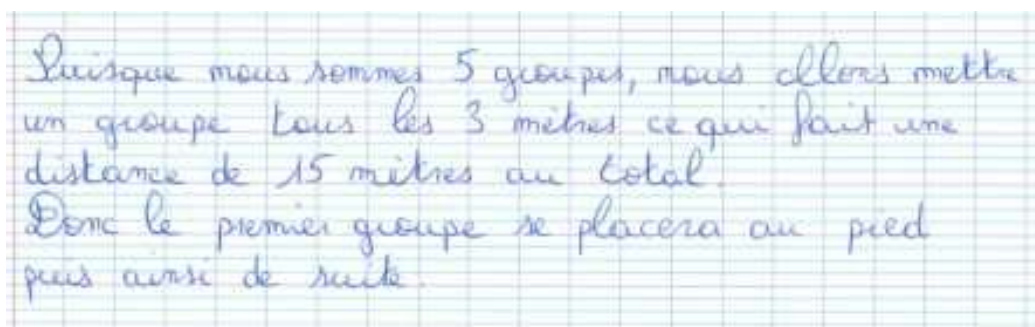 Puisque nous sommes 5 groupes, nous allons mettre
un groupe tous les 3 mètres ce qui fait une
distance de 15 mètres au total.
Donc le premier groupe se placera au pied
puis ainsi de suite.